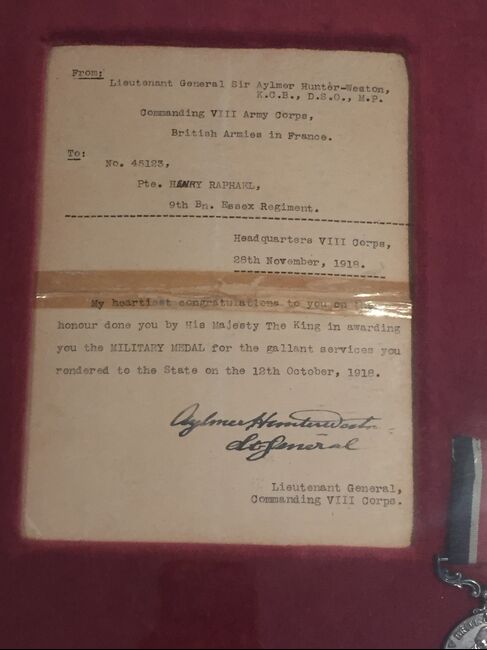 From:
Lieutenant General Sir Aylmer Hunter-Weston,
K.C.B., D.S.O., M.P.
Commanding VIII Army Corps,
British Armies in France.
To:
No. 45123,
Pte. HENRY RAPHAEL,
9th Bn. Essex Regiment.
Headquarters VIII Corps,
28th November, 1918.
My heartiest congratulations to you on the
honour done you by His Majesty The King in awarding
you the MILITARY MEDAL for the gallant services you
rendered to the State on the 12th October, 1918.
Aylmer Hunter-Weston
Lt General
Lieutenant General,
Commanding VIII Corps.